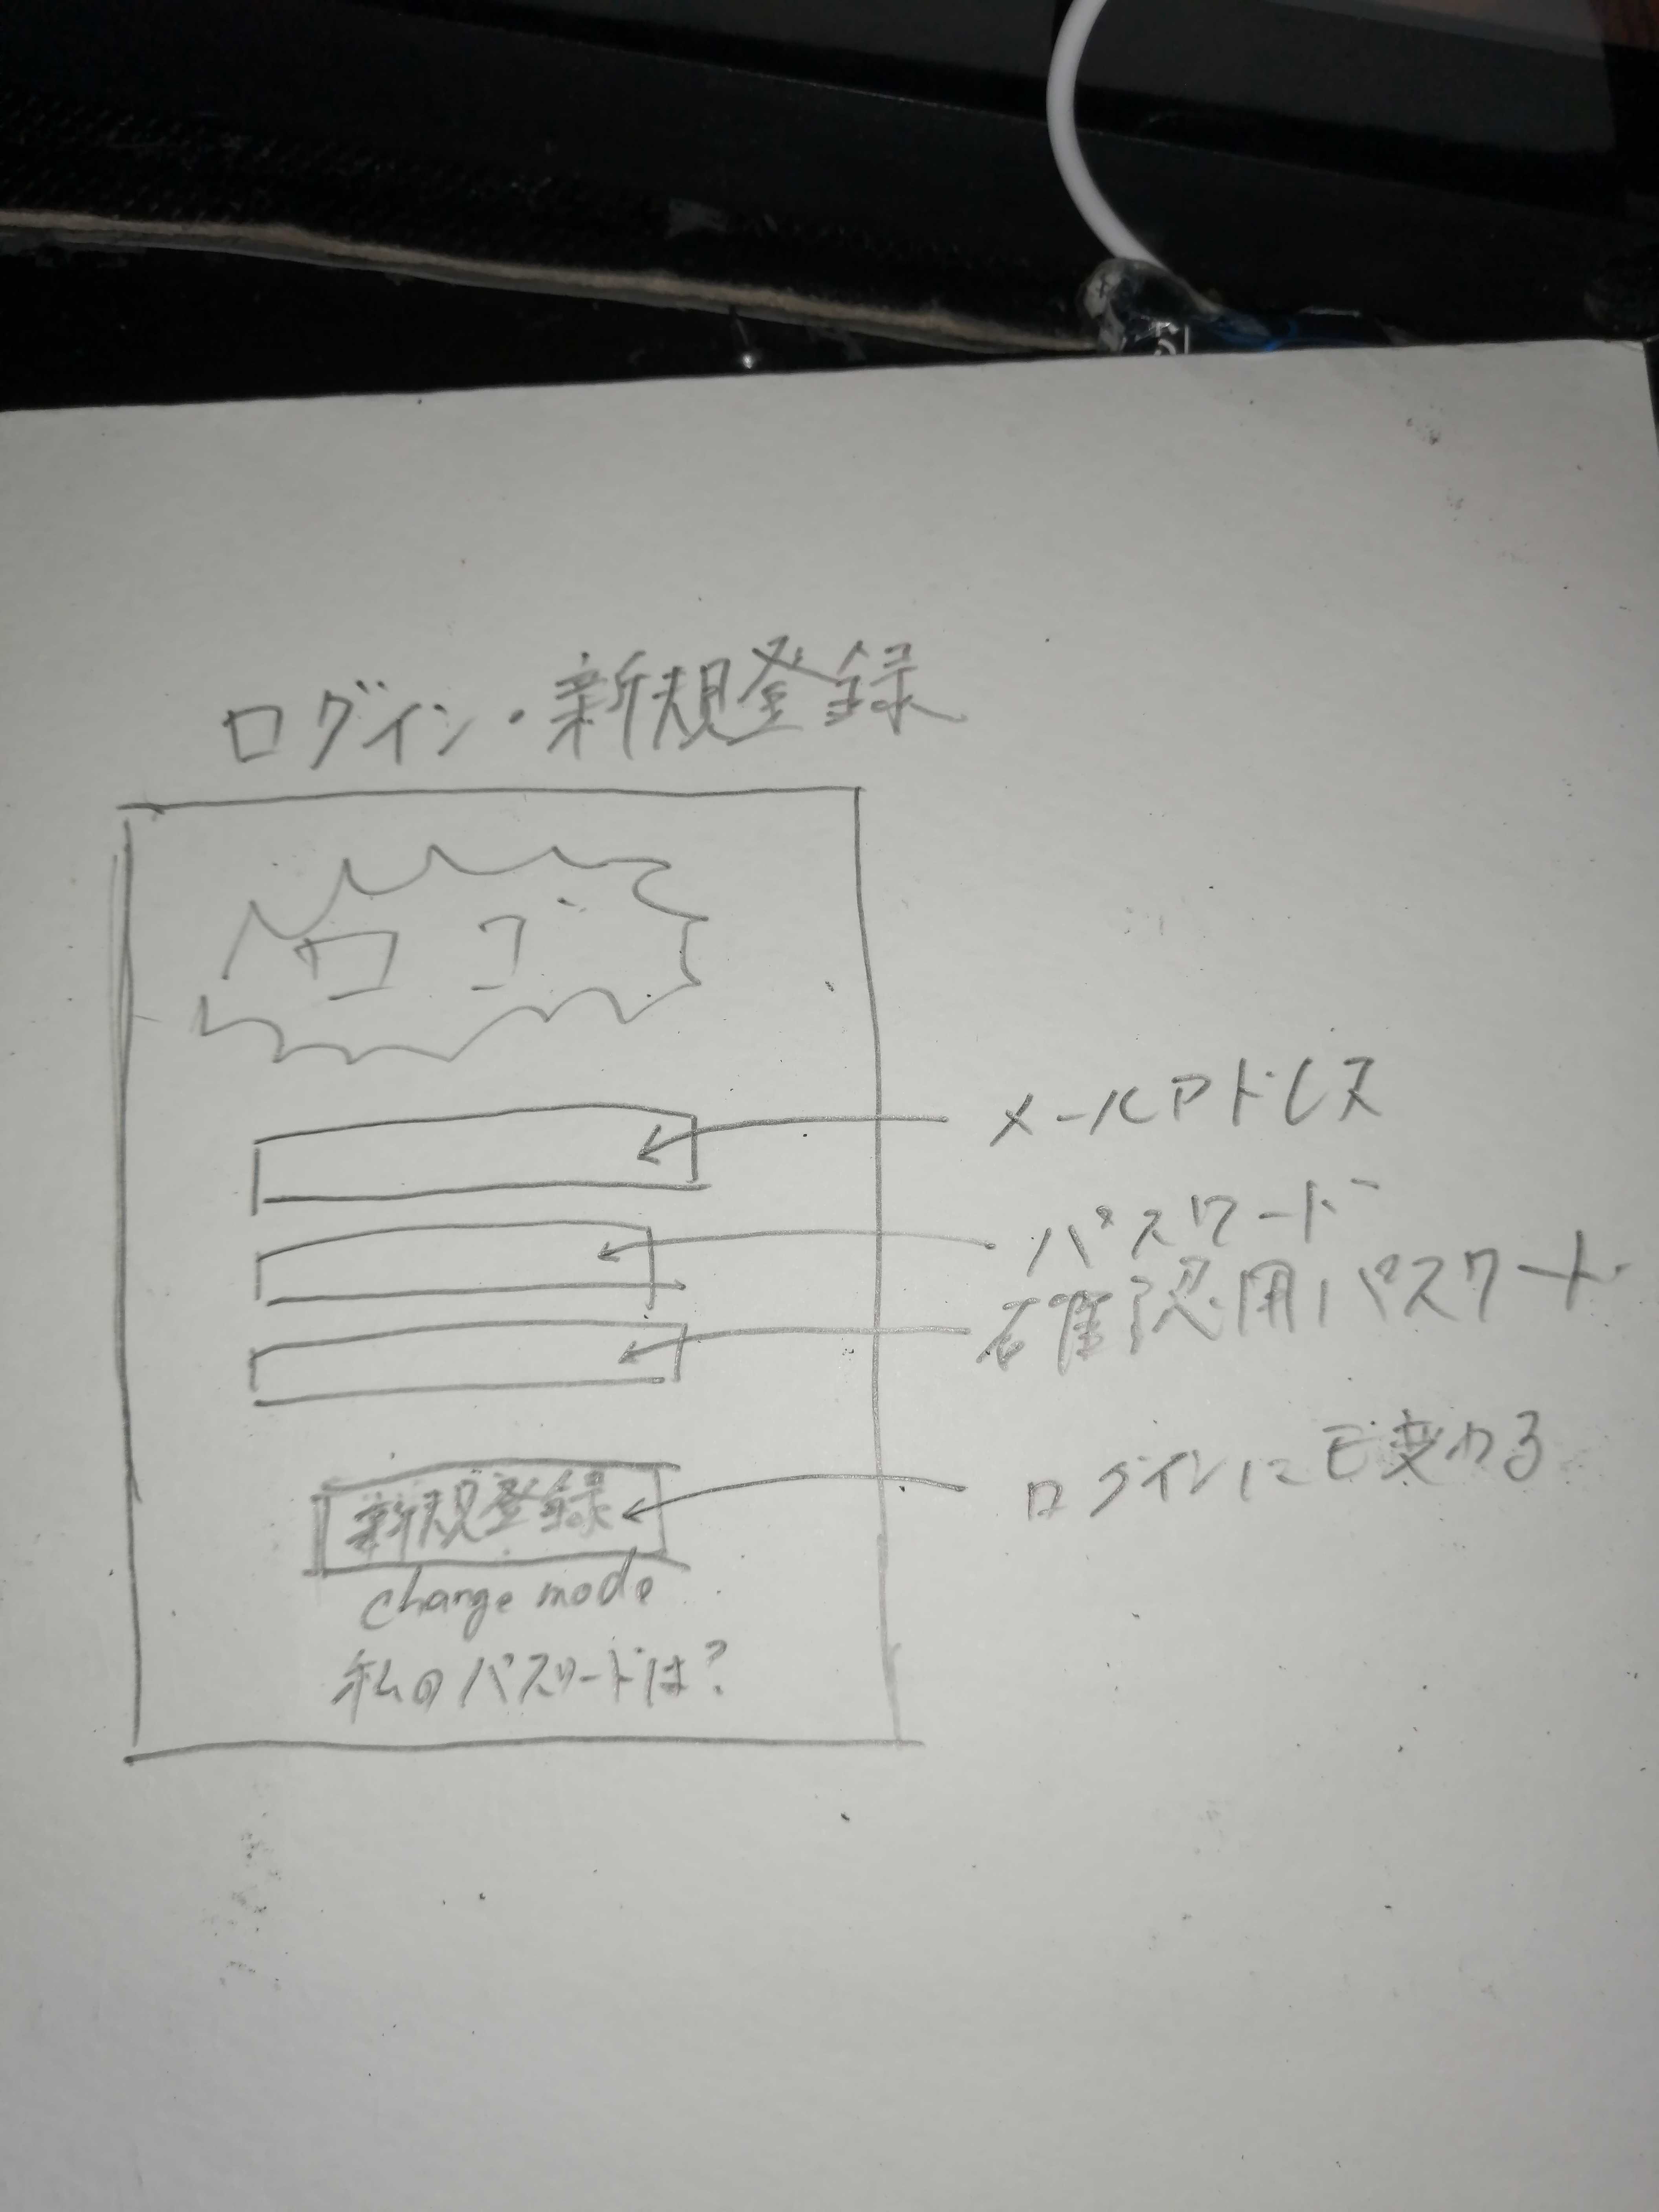 ログイン・新規登録
ロゴ
メールアドレス
パスワード
確認用パスワード
新規登録
ログインにも変わる
change mode
私のパスワードは?